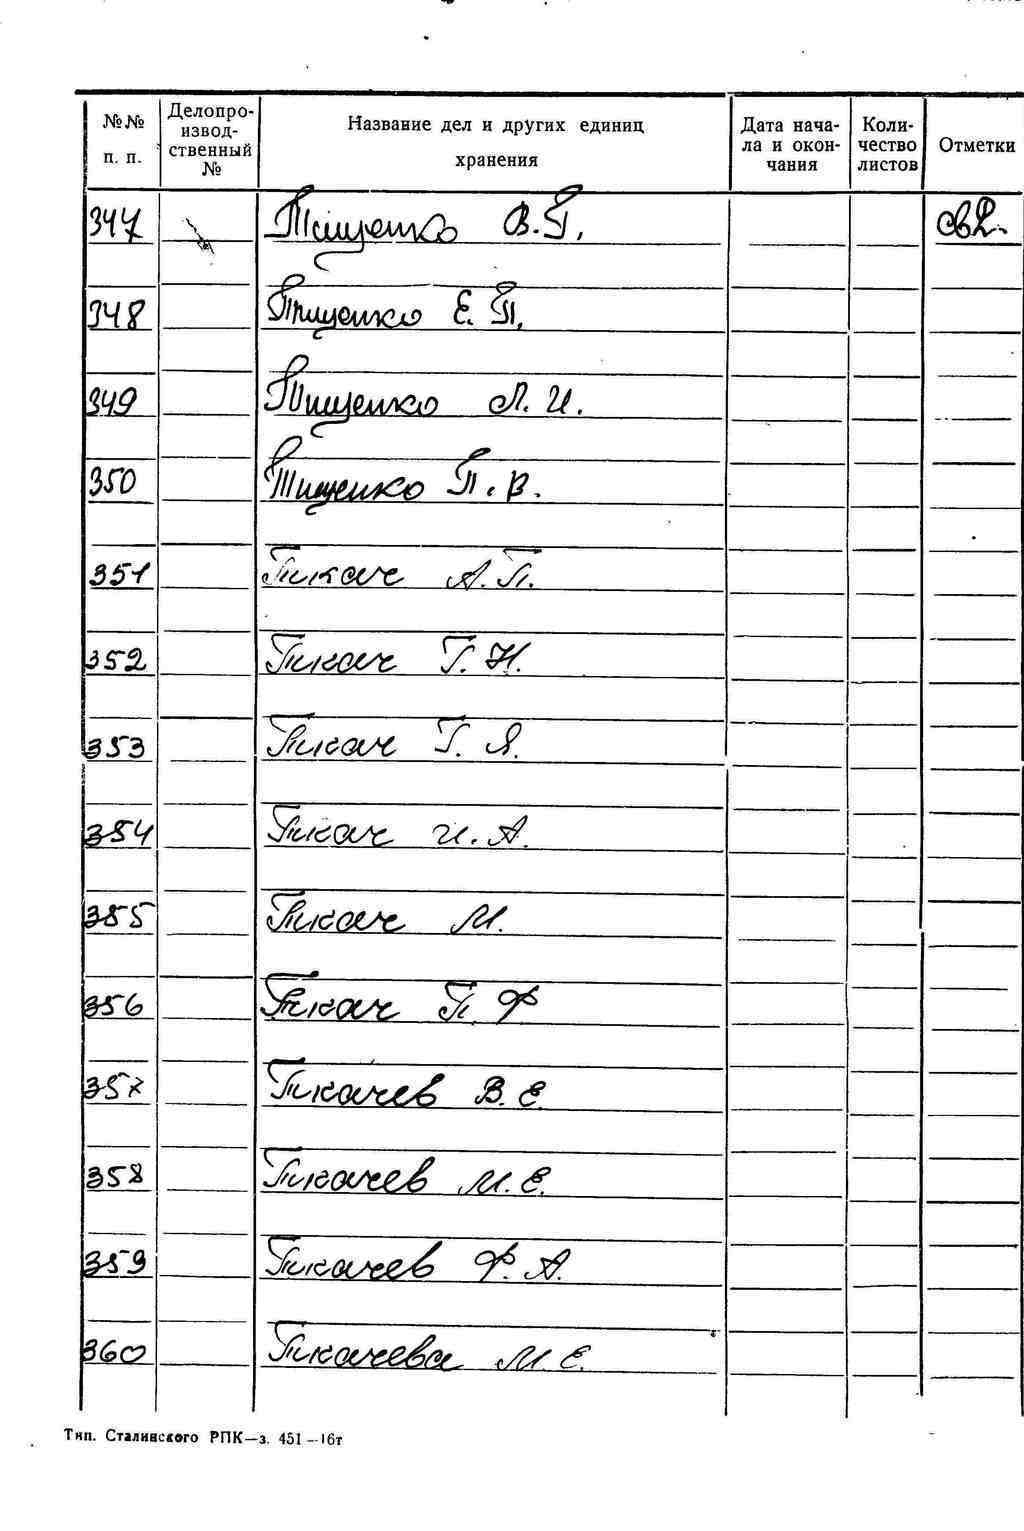 №№ п. п. Делопроизводственный № Название дел и других единиц хранения Дата начала и окончания Количество листов Отметки
347 Тищенко В. П.
348 Тищенко Е. П.
349 Тищенко Л. И.
350 Тищенко П. В.
351 Ткач А. П.
352 Ткач Г. Н.
353 Ткач Г. Я.
354 Ткач И. А.
355 Ткач М.
356 Ткач П. Ф
357 Ткачев В. Е.
358 Ткачев М. Е.
359 Ткачев Ф. А.
360 Ткачева М. Е.
Тип. Сталинского РПК—з. 451—16т